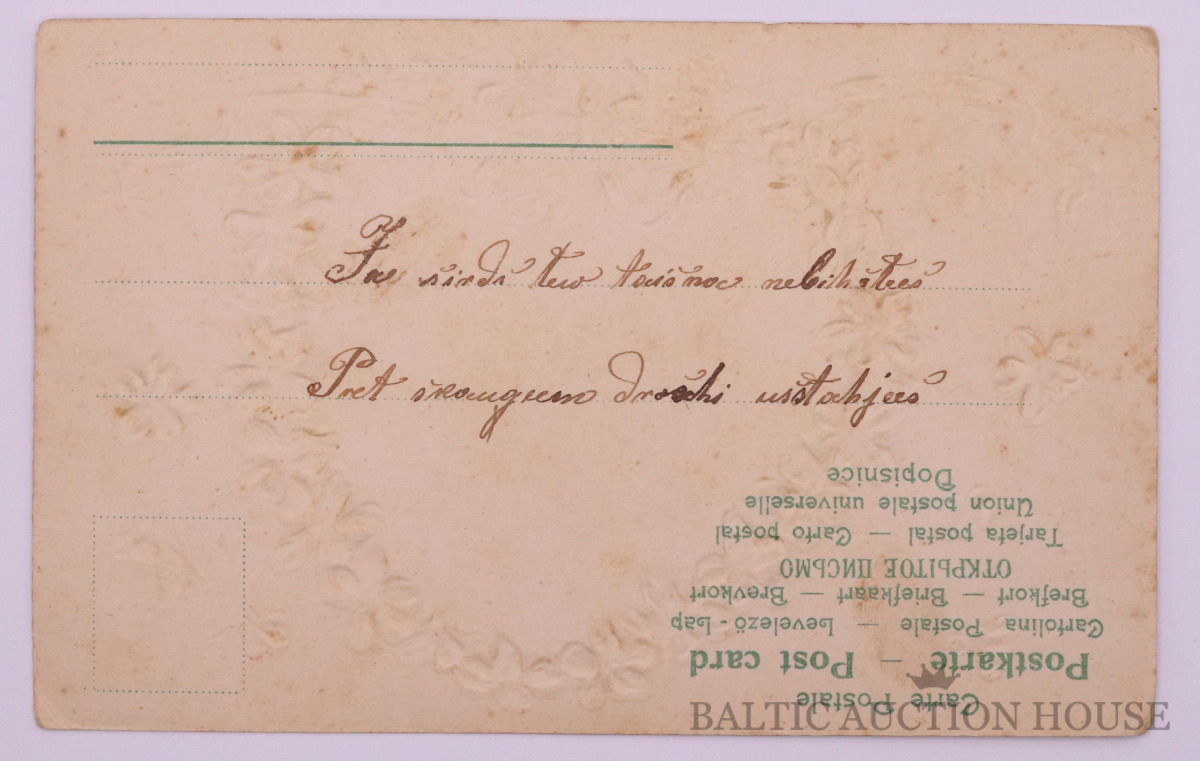 Ja sirds tew taisna nebihstees
Pret skaugeem droschi usstahjees
Dopisnice
Union postale universelle
Tarjeta postal — Carto postal
ОТКРЫТОЕ ПИСЬМО
Brefkort — Briefkaart — Brevkort
Cartolina Postale — Levelezö-Lap
Postkarte — Post card
Carte Postale
BALTIC AUCTION HOUSE